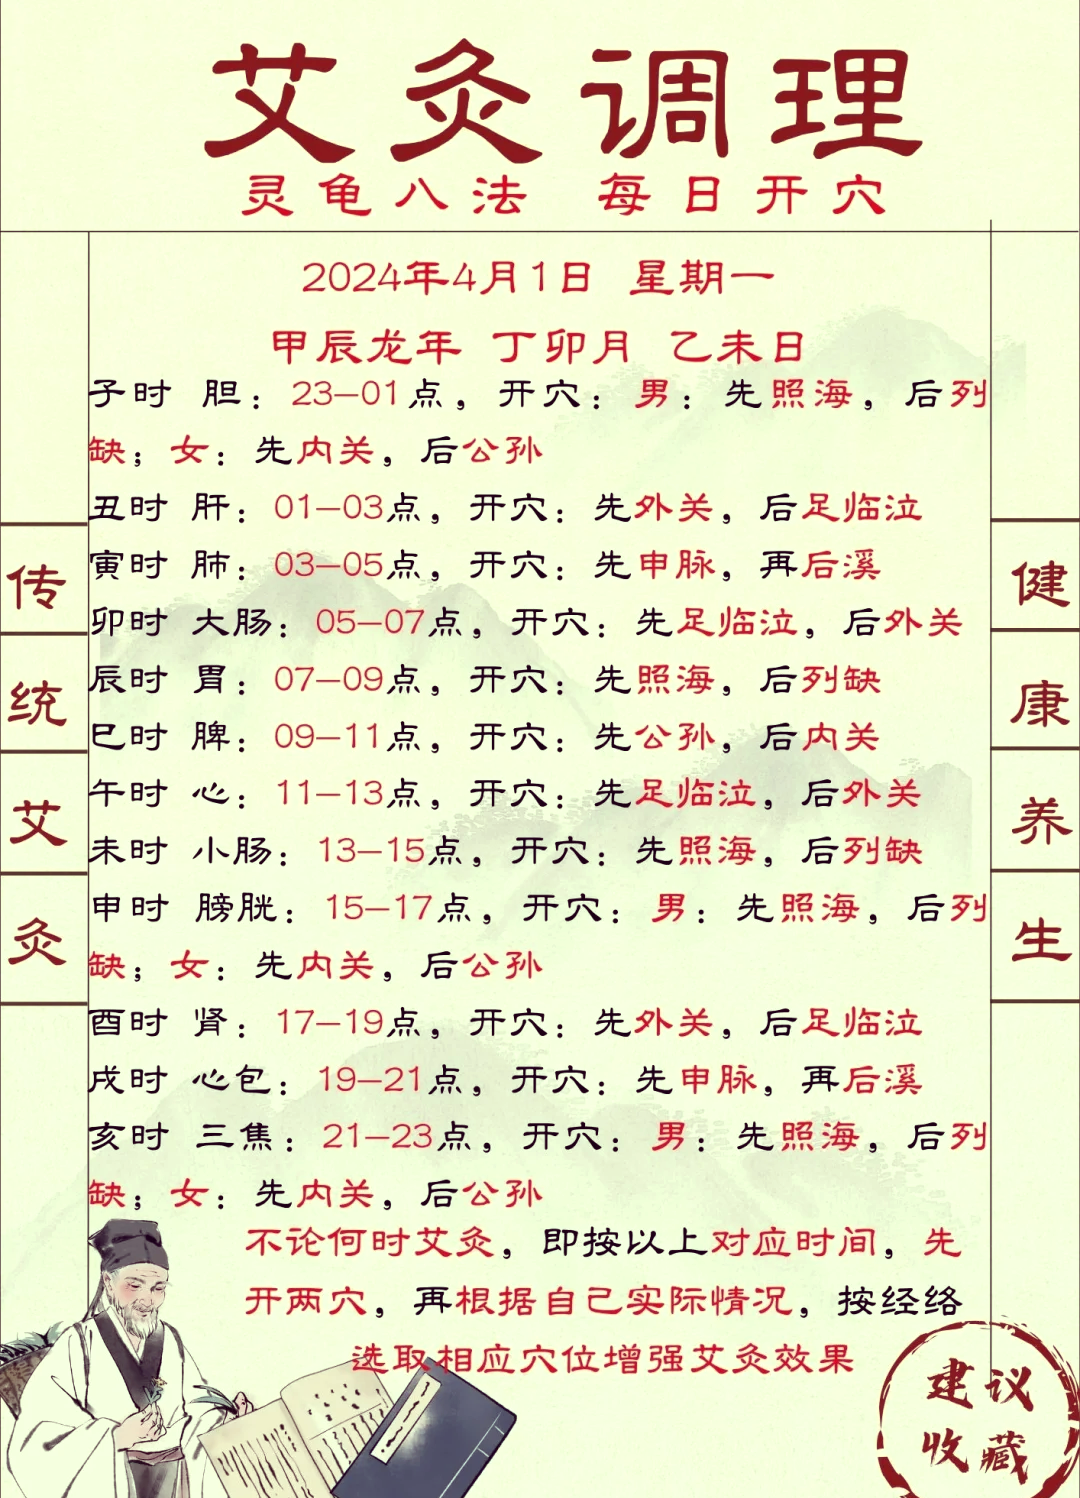 艾灸调理
灵龟八法 每日开穴
2024年4月1日 星期一
甲辰龙年 丁卯月 乙未日
子时 胆：23—01点，开穴：男：先照海，后列
缺；女：先内关，后公孙
丑时 肝：01—03点，开穴：先外关，后足临泣
寅时 肺：03—05点，开穴：先申脉，再后溪
卯时 大肠：05—07点，开穴：先足临泣，后外关
辰时 胃：07—09点，开穴：先照海，后列缺
巳时 脾：09—11点，开穴：先公孙，后内关
午时 心：11—13点，开穴：先足临泣，后外关
未时 小肠：13—15点，开穴：先照海，后列缺
申时 膀胱：15—17点，开穴：男：先照海，后列
缺；女：先内关，后公孙
酉时 肾：17—19点，开穴：先外关，后足临泣
戌时 心包：19—21点，开穴：先申脉，再后溪
亥时 三焦：21—23点，开穴：男：先照海，后列
缺；女：先内关，后公孙
不论何时艾灸，即按以上对应时间，先
开两穴，再根据自己实际情况，按经络
选取相应穴位增强艾灸效果
传统艾灸
健康养生
建议
收藏